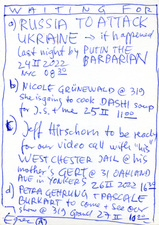 WAITING FOR
a) RUSSIA TO ATTACK
UKRAINE → it happened
last night by PUTIN THE
24 II 2022 BARBARIAN
NYC 08 30
b) NICOLE GRÜNEWALD @ 319
she is going to cook DASHI soup
for J.S. + me 25 II 11 00
c) Jeff Hirschorn to be ready
for our video call with "his"
WESTCHESTER JAIL @ his
mother's GERT @ 31 OAKLAND
AVE in YONKERS 26 II 2022 16 30
d) PETRA GEHRUNG + PASCALE
BURKART to come + see our
show @ 319 Grand 27 II 18 00